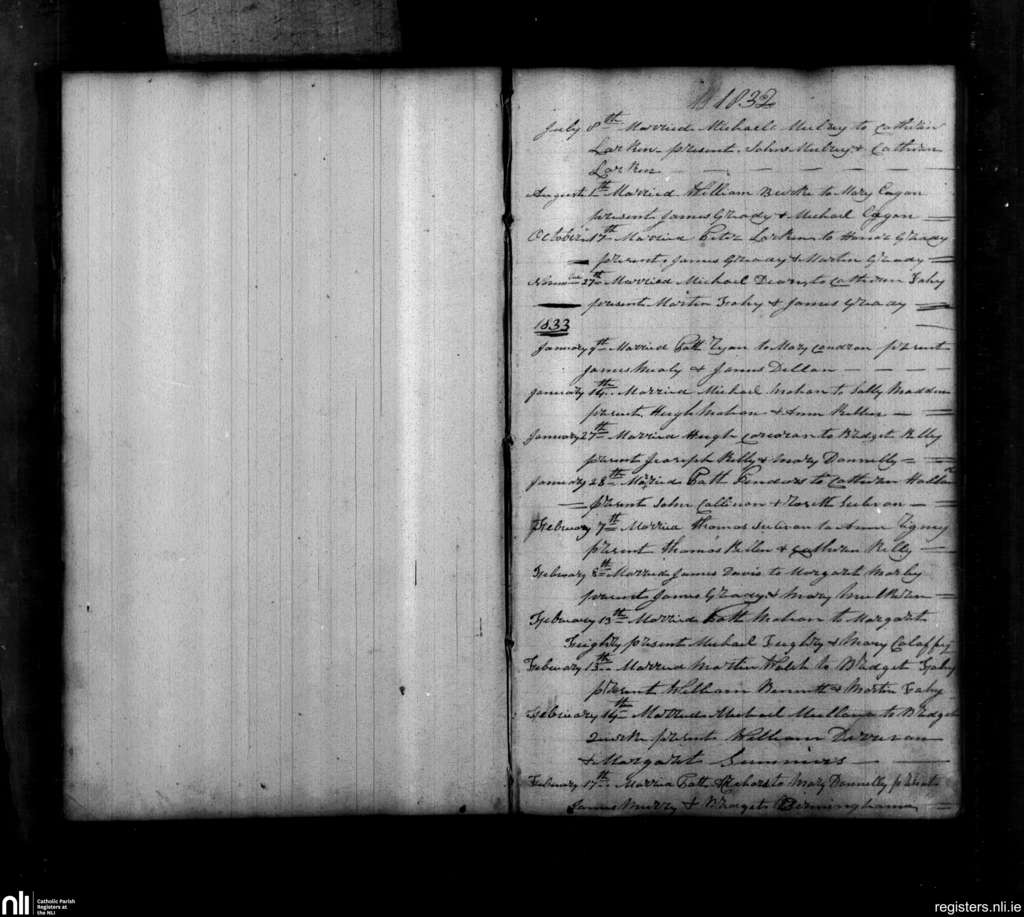 1832
July 8th Married Michael Mulry to Cathrin
Larken present John Mulry & Cathrin
Larken
August 1th Married William Burke to Mary Eagan
present James Gready & Michael Eagan
October 17th Married Peter Larken to Honor Gready
present James Gready & Martin Gready
27th Married Michael to Cathrin Fahy
present Martin Fahy & James Gready
1833
January 9th Married Patt Ryan to Mary Condron present
James Nealy & James Dillan
January 14th Married Michael Mohan to Sally Madden
present Hugh Mohan & Ann Killen
January 27th Married Hugh Corcoran to Bridget Kelly
present Joseph Kelly & Mary Donnelly
January 28th Married Patt to Cathrin
present John & Sulivan
February 7th Married Thomas Sulivan to Anne
present Thomas & Cathrin Kelly
February 8th Married James Davis to Margaret
present James Gready & Mary
February 13th Married Patt Mohan to Margaret
Feighry present Michael Feighry & Mary
February 13th Married Martin Walsh to Bridget Fahy
present William Bennett & Martin Fahy
February 14th Married Michael Mullany to Bridget
present William
& Margaret Summers
February 17th Married Patt to Mary Donnelly present
James Murry & Bridget Berminghame
nli
Catholic Parish
Registers at
the NLI
registers.nli.ie